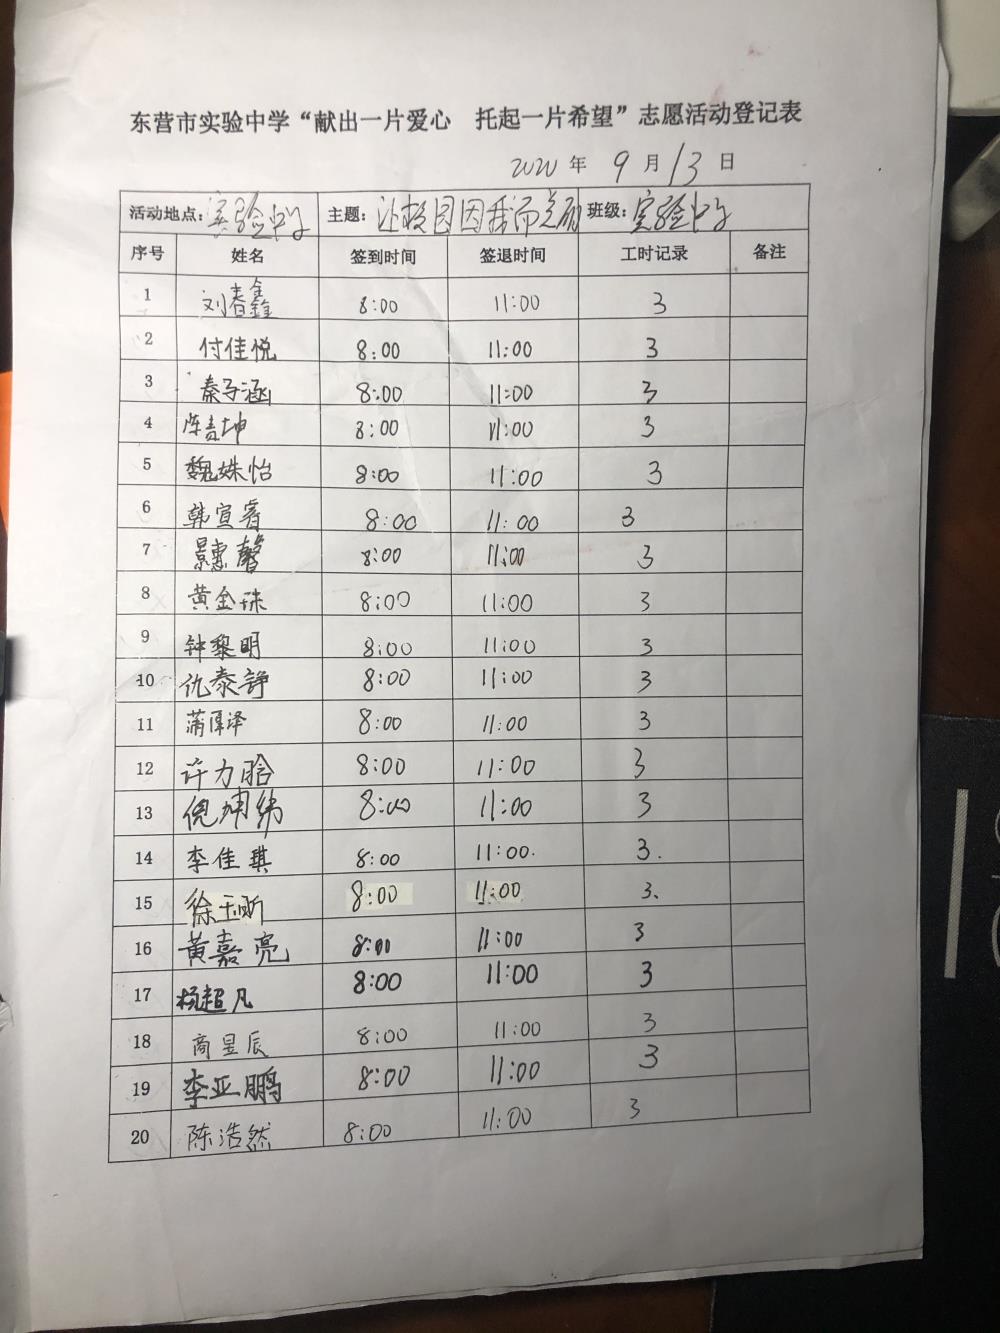 东营市实验中学“献出一片爱心 托起一片希望”志愿活动登记表
2020 年 9 月 13 日
活动地点: 实验中学 主题: 让校园因我而亮丽 班级: 实验中学
序号 姓名 签到时间 签退时间 工时记录 备注
1 刘春鑫 8:00 11:00 3
2 付佳悦 8:00 11:00 3
3 秦子涵 8:00 11:00 3
4 陈 坤 8:00 11:00 3
5 魏姝怡 8:00 11:00 3
6 韩宣睿 8:00 11:00 3
7 景惠馨 8:00 11:00 3
8 黄金珠 8:00 11:00 3
9 钟黎明 8:00 11:00 3
10 仇泰铮 8:00 11:00 3
11 蒲厚泽 8:00 11:00 3
12 许力晗 8:00 11:00 3
13 倪坤纬 8:00 11:00 3
14 李佳琪 8:00 11:00. 3.
15 徐玉昕 8:00 11:00 3.
16 黄嘉亮 8:00 11:00 3
17 杨超凡 8:00 11:00 3
18 商昱辰 8:00 11:00 3
19 李亚鹏 8:00 11:00 3
20 陈浩然 8:00 11:00 3